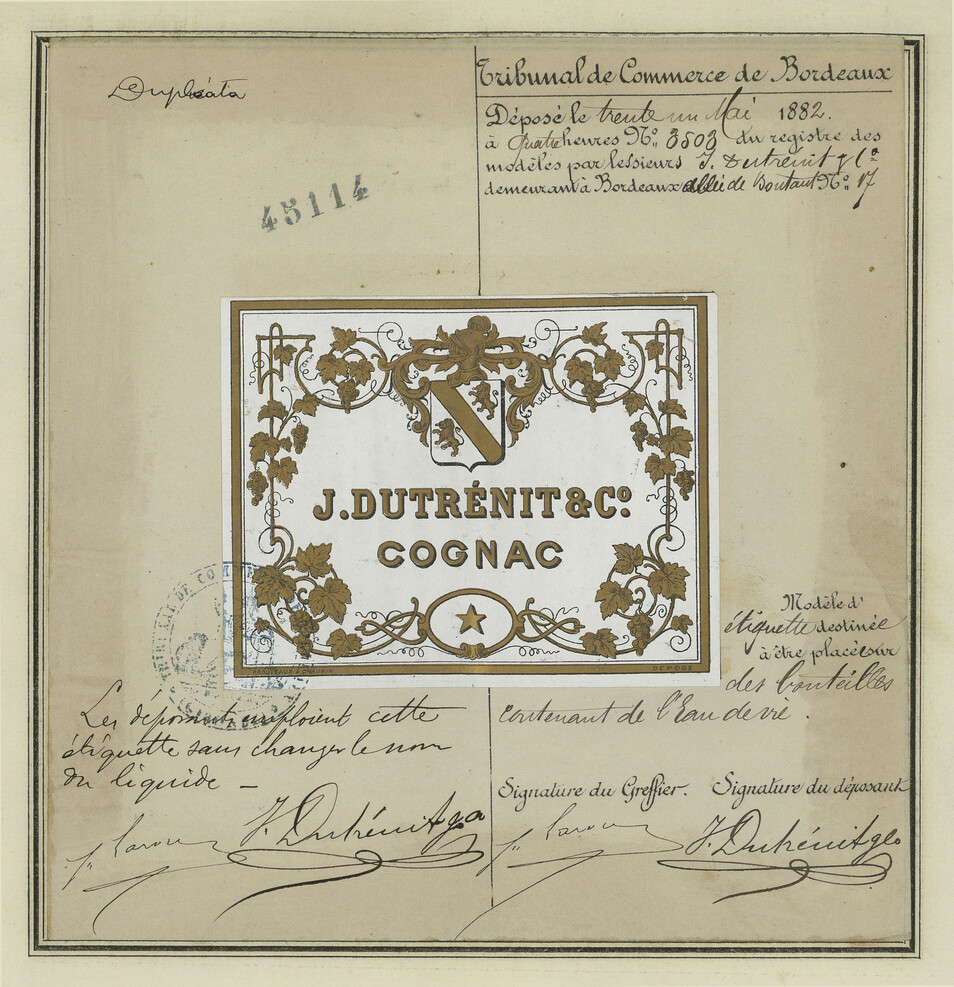 Duplicata
45114
Tribunal de Commerce de Bordeaux
Déposé le trente un Mai 1882.
à quatre heures N.° 3503 du registre des
modèles par les sieurs J. Dutrénit & Cᵉ
demeurant à Bordeaux allée de Boutaut N.° 17
J. DUTRÉNIT & Cº.
COGNAC
DÉPOSÉ
TRIBUNAL DE COMMERCE
Modèle d'
étiquette destinée
à être placée sur
des bouteilles
contenant de l'Eau de vie.
Les déposants emploient cette
étiquette sans changer le nom
du liquide –
Signature du Greffier. Signature du déposant
J. Dutrénit & Co
J. Dutrénit & Co